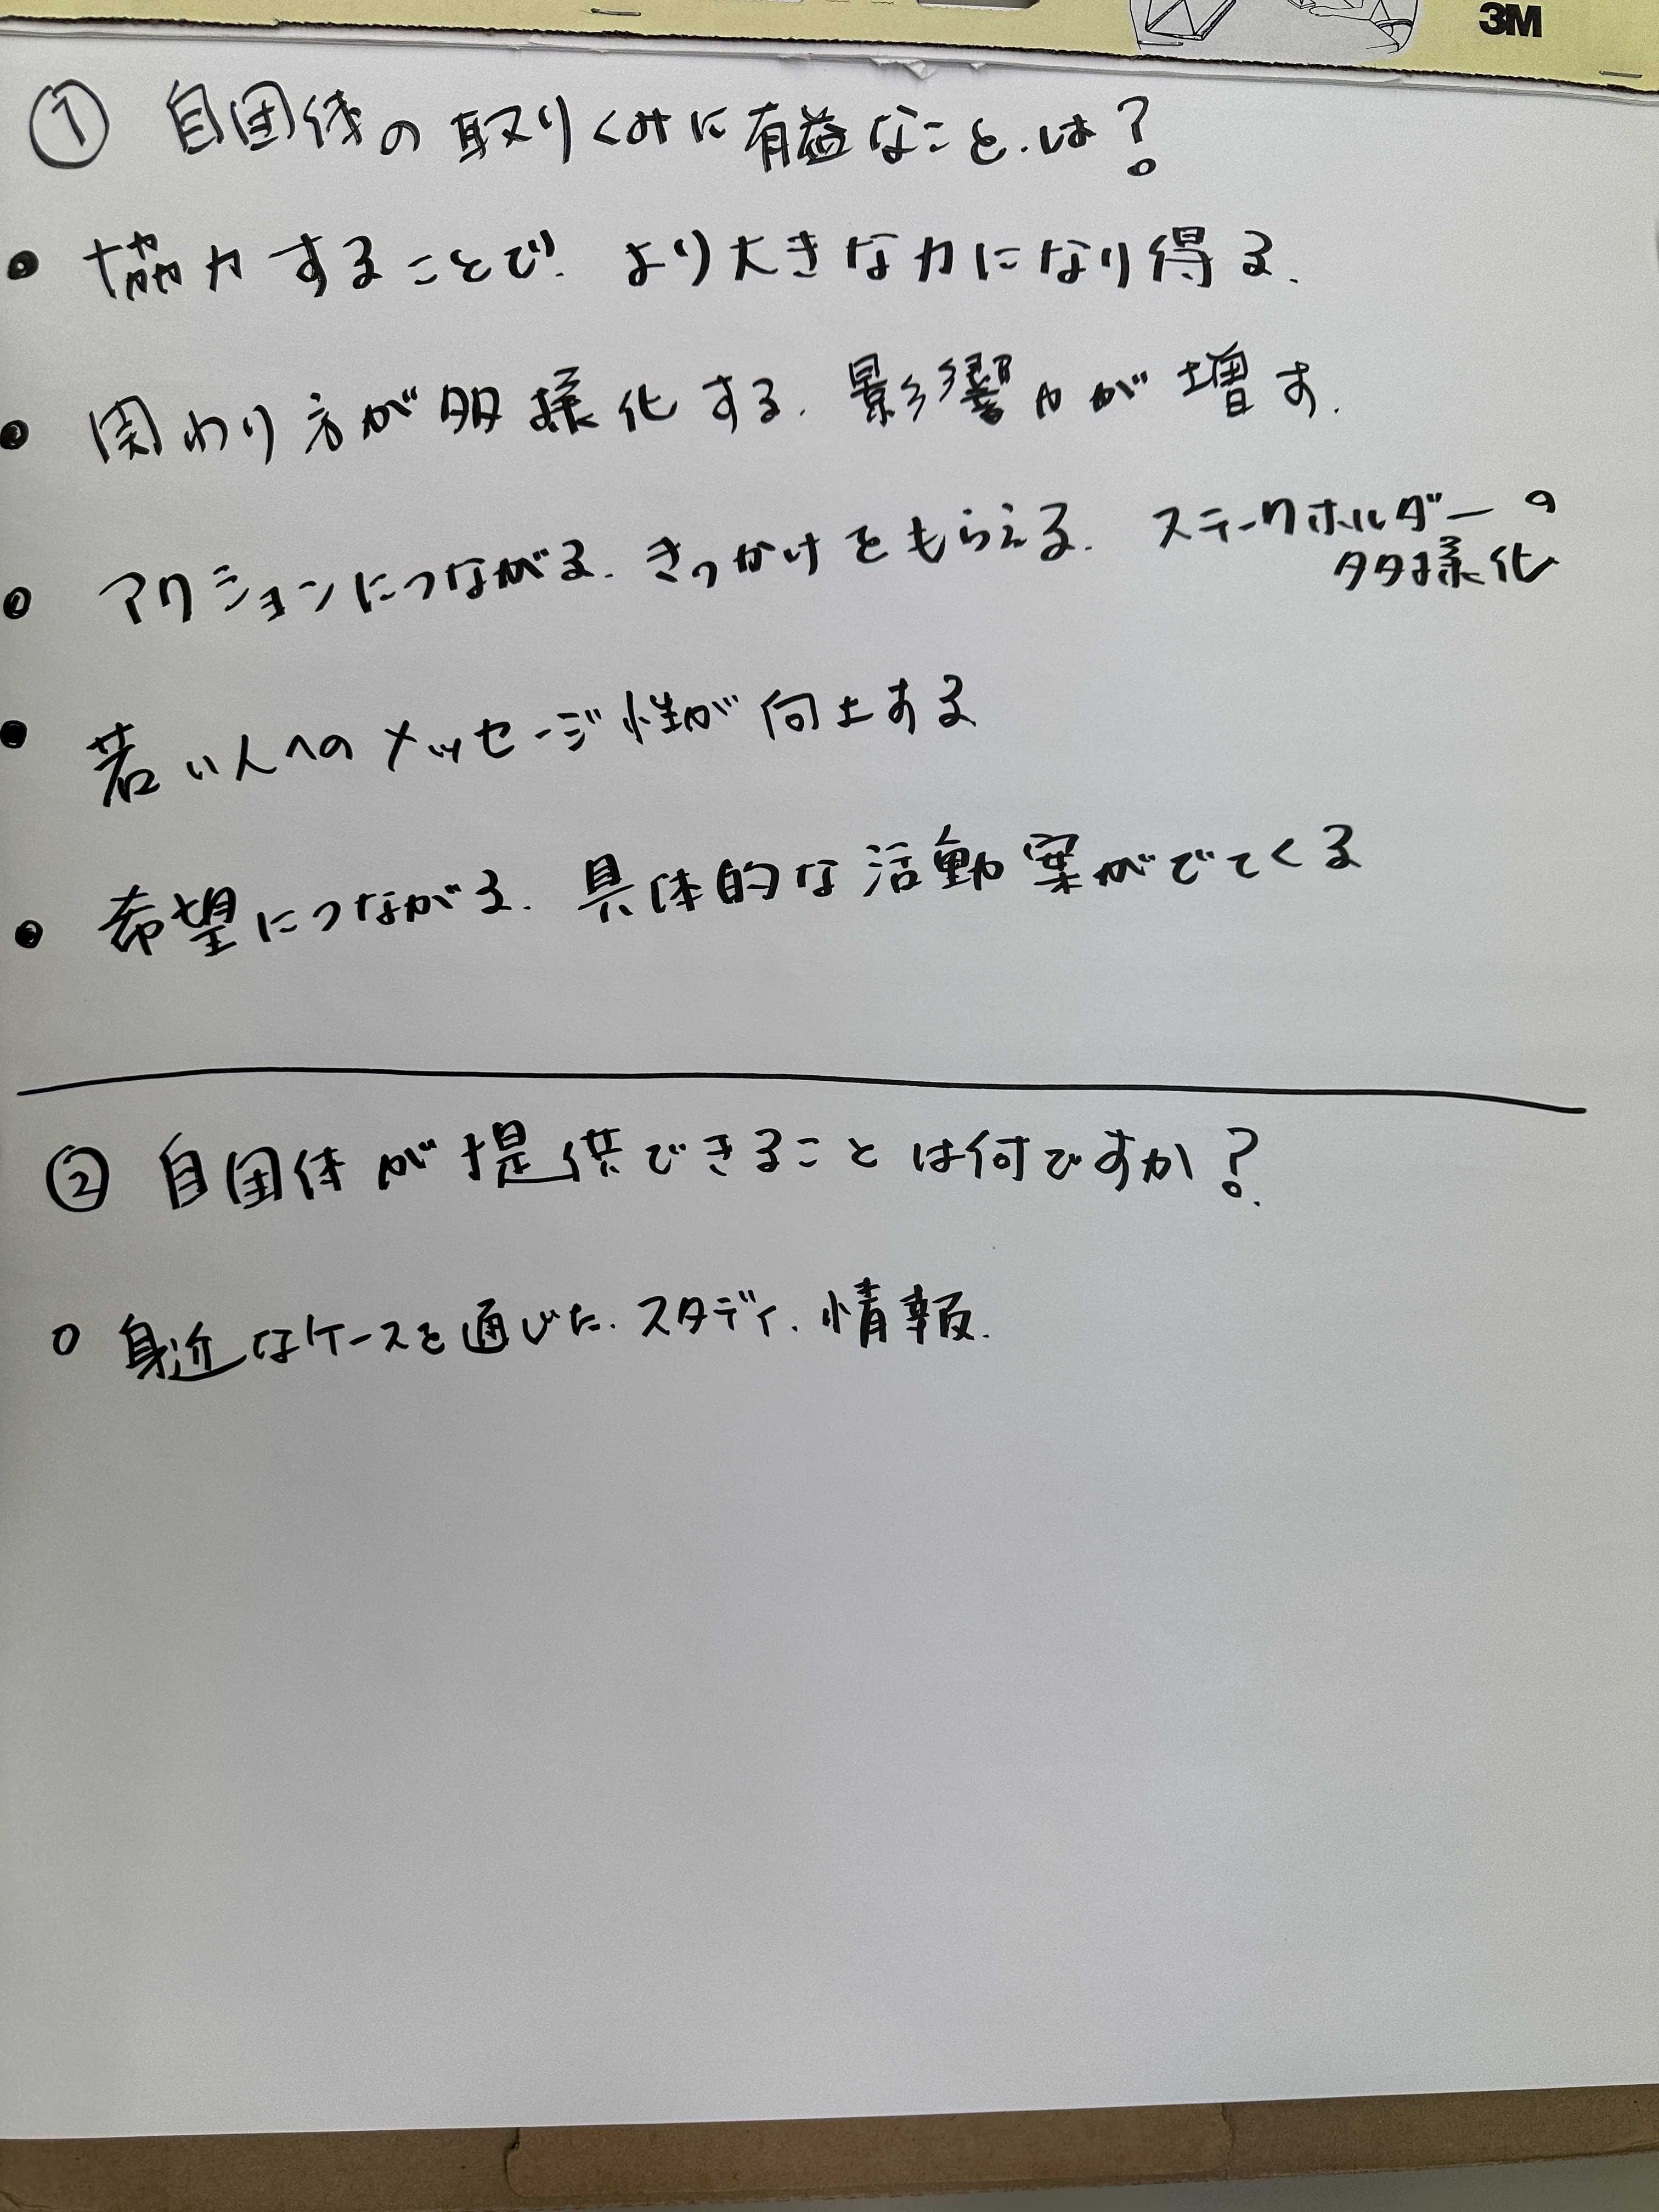 3M
① 自団体の取りくみに有益なこと.は?
● 協力することで. より大きな力になり得る.
● 関わり方が多様化する. 影響力が増す.
● アクションにつながる. きっかけをもらえる. ステークホルダーの
多様化
● 若い人へのメッセージ性が向上する
● 希望につながる. 具体的な活動案がでてくる
② 自団体が提供できることは何ですか?.
○ 身近なケースを通じた. スタディ. 情報.